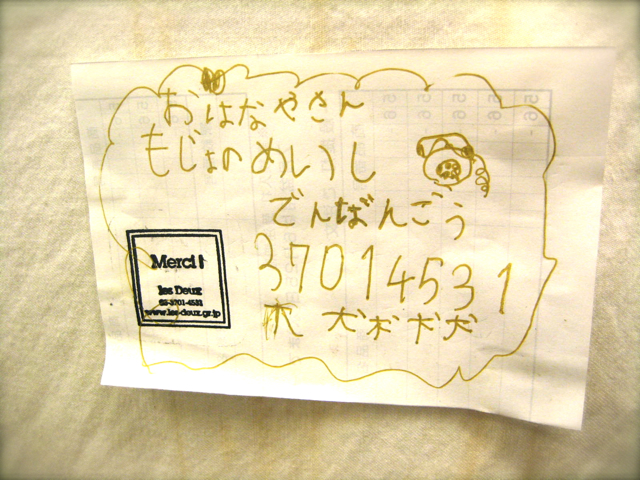 おはなやさん
もじょのめいし
でんばんごう
37014531
Merci!
les Deux
03-3701-4531
www.les-deux.gr.jp
犬